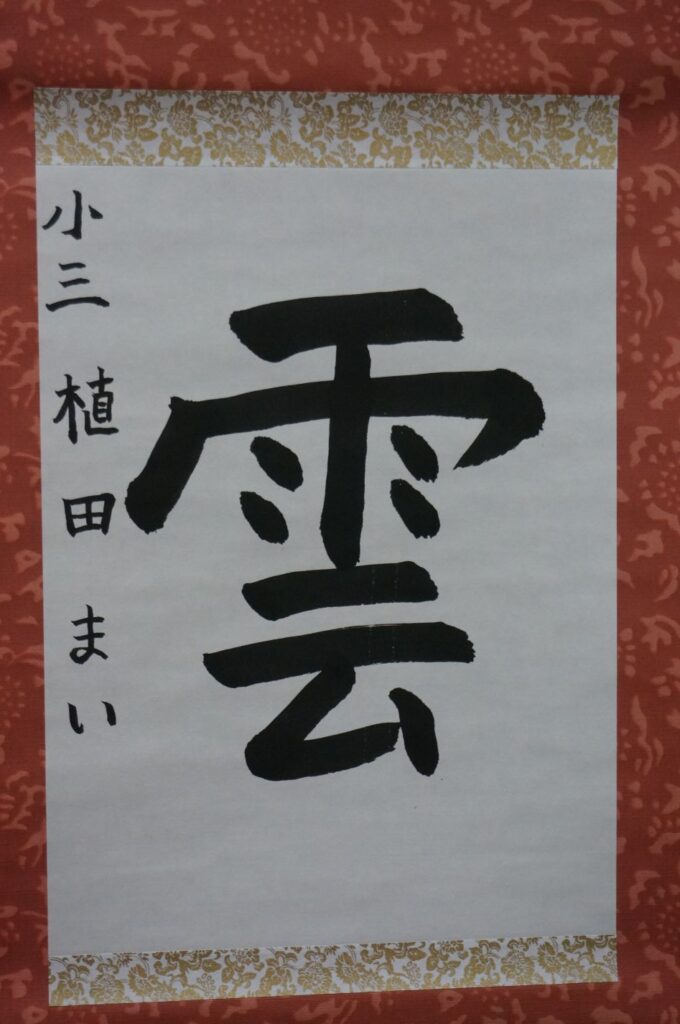 雲
小三 植田 まい